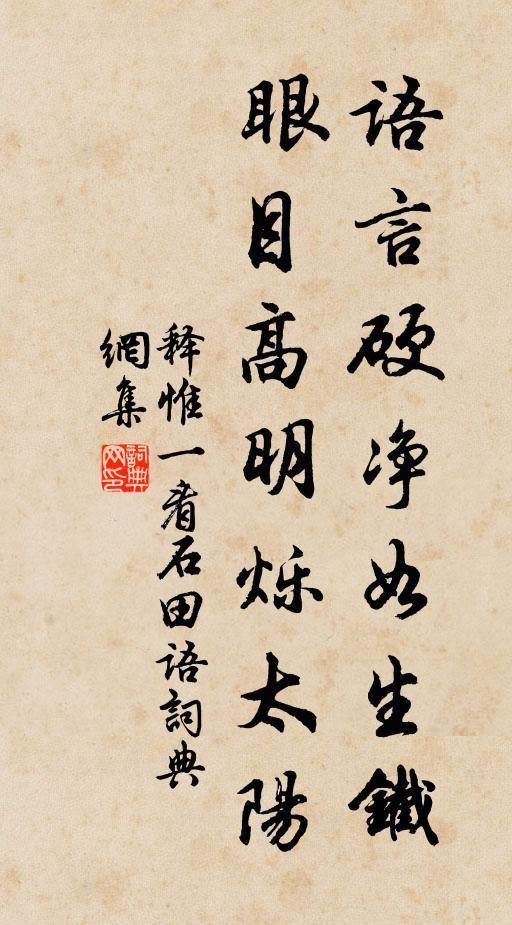 语言硬净如生鐵
眼目高明烁太陽
释惟一看石田语詞典
網集
詞典
网印